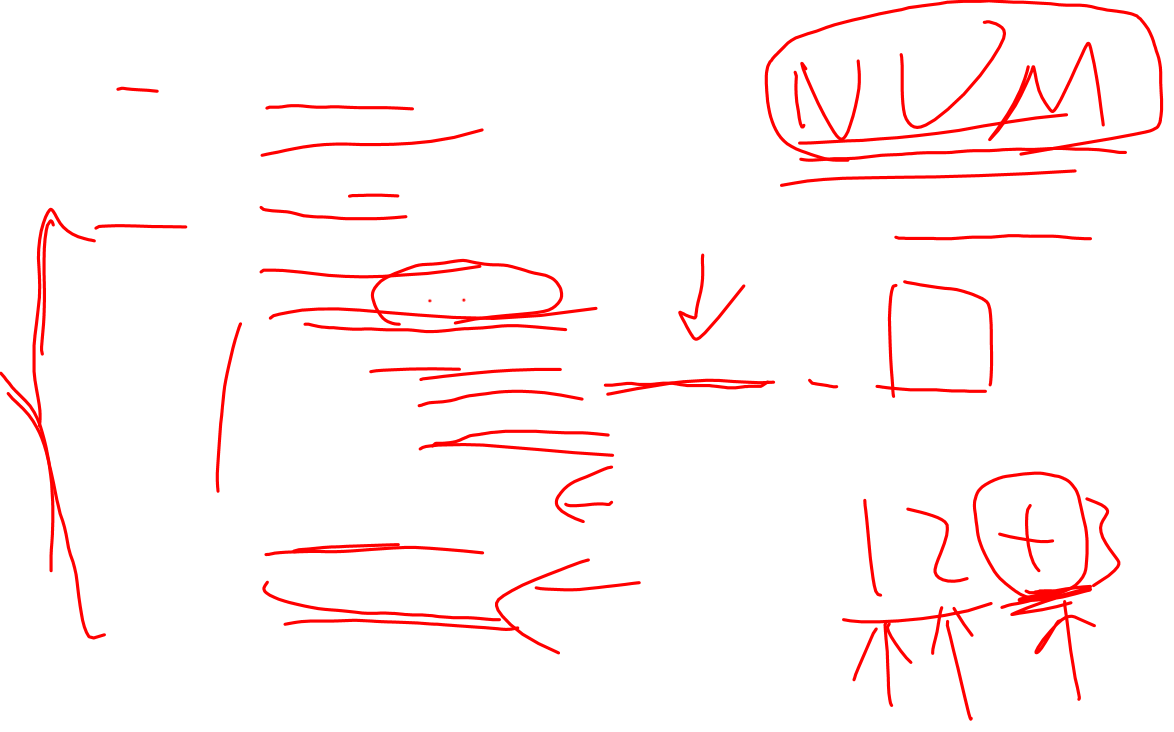 NUM
12+3